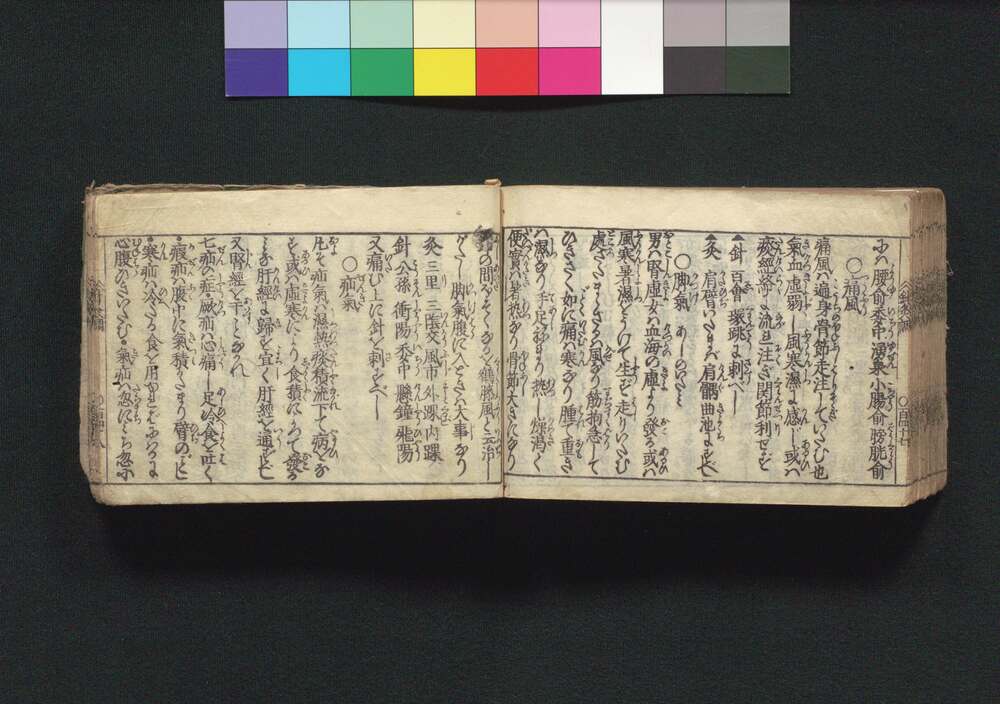 又ハ腰俞委中湧泉小腸俞膀胱俞
○痛風
痛風ハ遍身骨節走注していたむ也
氣血虛弱し風寒濕に感し或ハ
痰經絡に流注き関節利せざ
▲針 百會 環跳に刺べし
▲灸 肩臂いたまハ肩髃曲池にすべし
○脚氣 あしのけ
男ハ腎虛女ハ血海の虛より發る或ハ
風寒暑濕をうけて生ず走りいたむ
處さだまらざるハ風なり筋拘急して
ひきさく如に痛ハ寒なり腫て重き
ハ濕なり手足あたまり熱し燥渴く
便實ハ暑熱なり骨節大きになり
の間ほそくなるハ鶴膝風と云治し
がたし脚氣腹に入ときハ大事なり
灸 三里 三陰交 風市 外踝 内踝
針 公孫 衝陽 委中 懸鐘 飛陽
又痛む上に針を刺すべし
○疝氣
凡そ疝氣ハ濕熱痰積流下て病をな
す或ハ虛寒により食積にあて發る
みな肝經に歸す宜く肝經を通ずべし
又腎經を干しなかれ
七疝の症・厥疝ハ心痛し足冷食を吐く
・瘕疝ハ腹中に氣積りたまり臂のごとし
・寒疝ハ冷たる食を用ればにはかに
心腹ひきいたむ・氣疝ハ忽にみち忽に